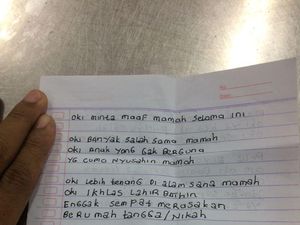 oki minta maaf mamah selama ini
oki Banyak salah sama mamah
oki anak yang gak Berguna
yg cuma nyusahin mamah
oki lebih tenang di alam sana mamah
oki ikhlas lahir Bathin
Enggak sempat merasakan
Berumah tangga / Nikah